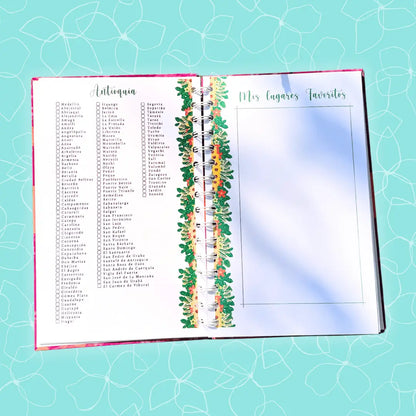 Antioquia
Medellín
Abejorral
Abriaquí
Alejandría
Amagá
Amalfi
Andes
Angelópolis
Angostura
Anorí
Apartadó
Arboletes
Argelia
Armenia
Barbosa
Bello
Belmira
Betania
Betulia
Ciudad Bolívar
Briceño
Buriticá
Cáceres
Caicedo
Caldas
Campamento
Caracolí
Caramanta
Carepa
Carolina
Caucasia
Chigorodó
Cisneros
Cocorná
Concepción
Concordia
Copacabana
Dabeiba
Don Matías
Ebéjico
El Bagre
Entrerríos
Envigado
Fredonia
Giraldo
Girardota
Gómez Plata
Guadalupe
Guarne
Guatapé
Heliconia
Hispania
Itagüí
Ituango
Jericó
La Ceja
La Estrella
La Pintada
La Unión
Liborina
Maceo
Marinilla
Montebello
Murindó
Mutatá
Nariño
Necoclí
Nechí
Olaya
Peñol
Peque
Pueblorrico
Puerto Berrío
Puerto Nare
Puerto Triunfo
Remedios
Retiro
Sabanalarga
Sabaneta
Salgar
San Francisco
San Jerónimo
San Luis
San Pedro
San Rafael
San Roque
San Vicente
Santa Bárbara
El Santuario
San Pedro de Urabá
Santafé de Antioquia
Santa Rosa de Osos
San Andrés de Cuerquia
Vigía del Fuerte
San José de la Montaña
San Juan de Urabá
El Carmen de Viboral
Segovia
Sopetrán
Támesis
Tarazá
Tarso
Titiribí
Toledo
Turbo
Uramita
Urrao
Valdivia
Valparaíso
Vegachí
Venecia
Yalí
Yarumal
Yolombó
Yondó
Zaragoza
San Carlos
Sonsón
Mis Lugares Favoritos